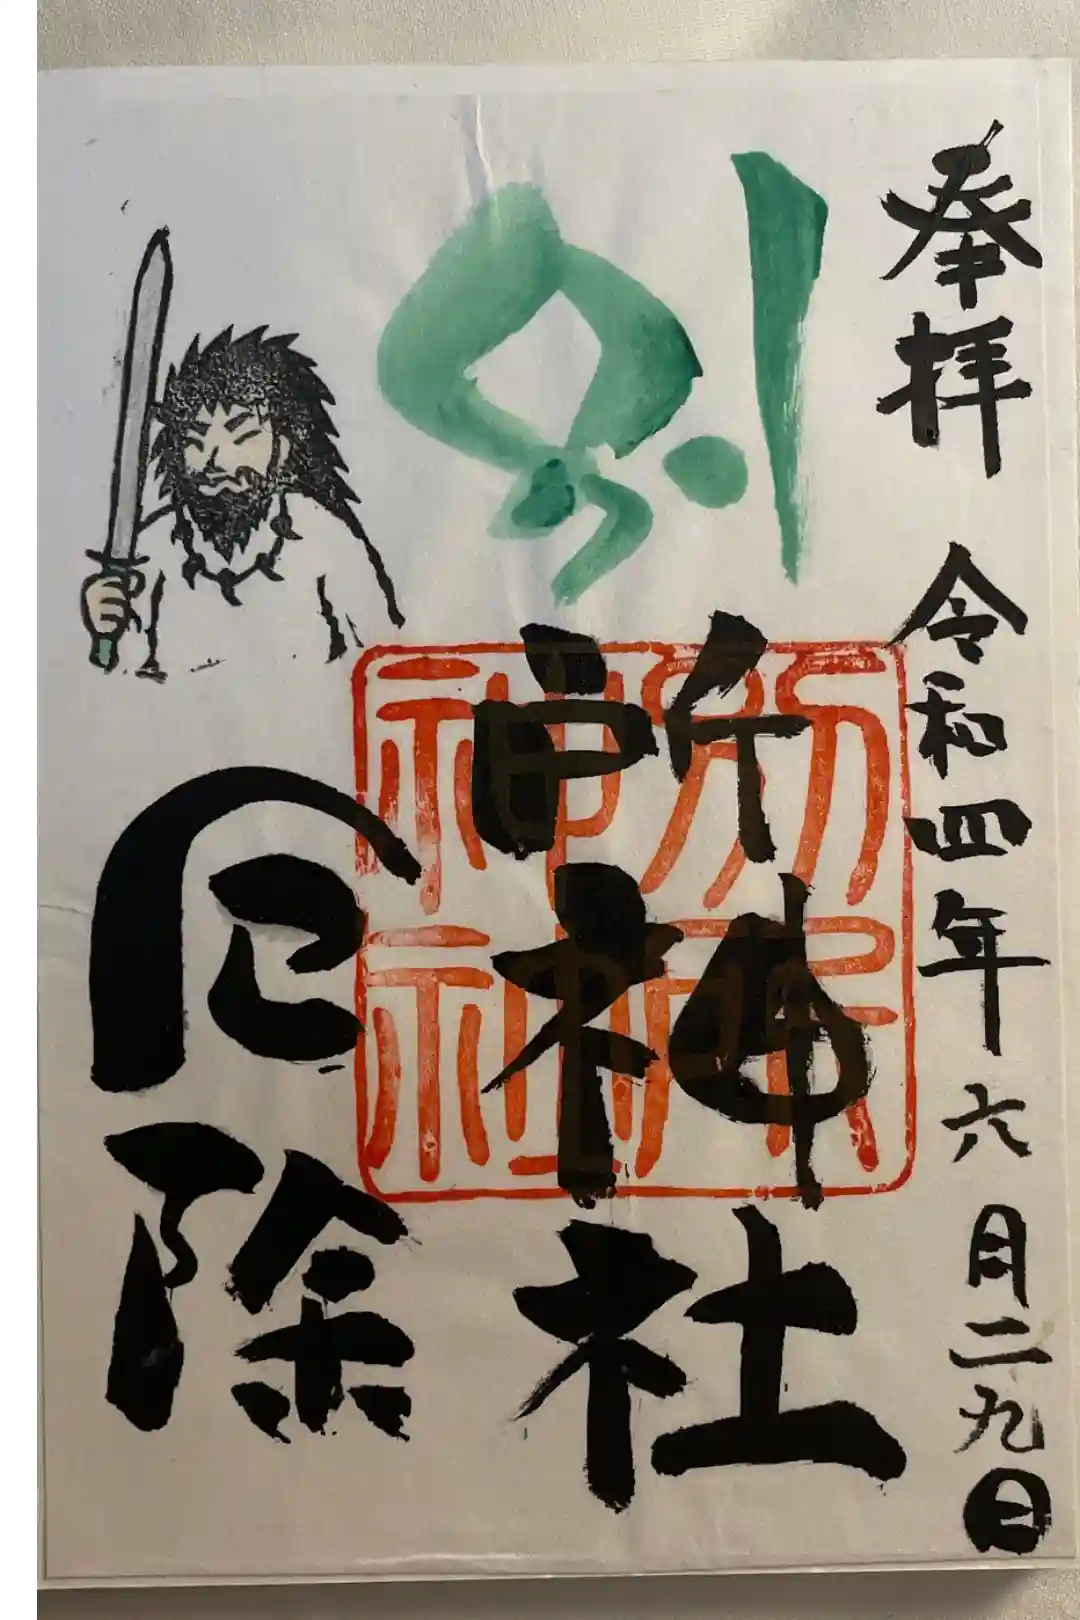 奉拝
令和四年六月二九日
別所神社
厄除
別所神社